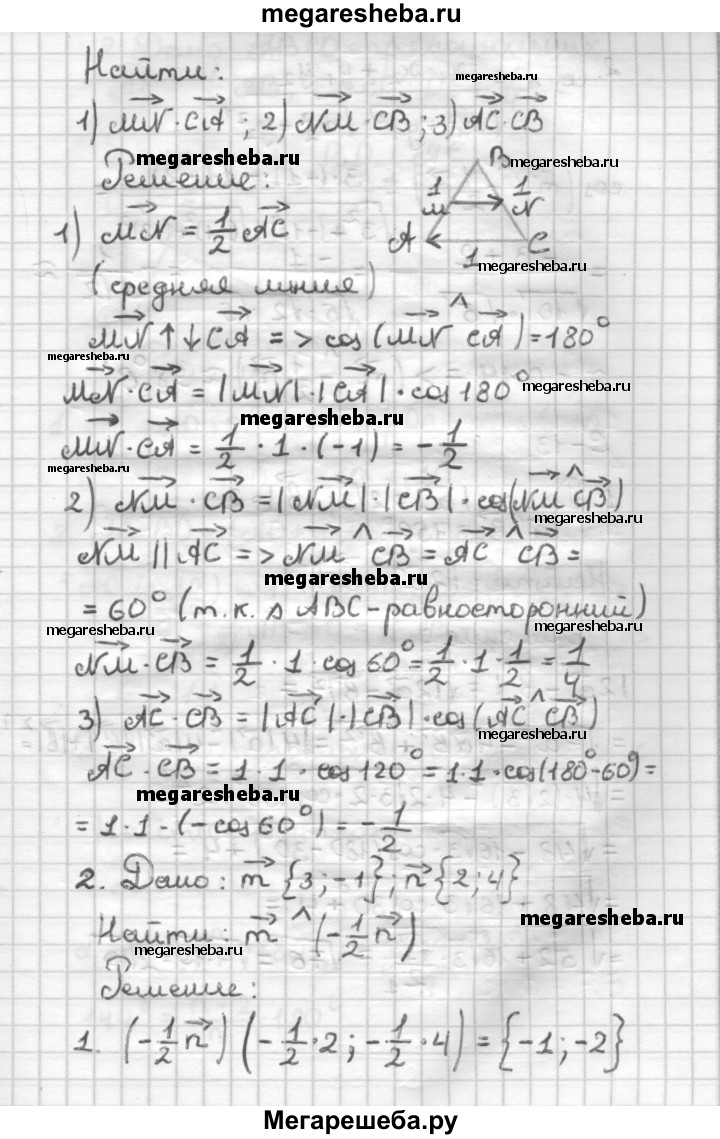 megaresheba.ru
Найти:
megaresheba.ru
1) MN · CA ; 2) NM · CB ; 3) AC · CB
megaresheba.ru
Решение:
B megaresheba.ru
1 1
M N
1) MN = 1/2 AC
A C
1
megaresheba.ru
(средняя линия)
MN ↑↓ CA => cos(MN ^ CA) = 180°
megaresheba.ru
MN · CA = |MN| · |CA| · cos 180°
megaresheba.ru
megaresheba.ru
MN · CA = 1/2 · 1 · (-1) = - 1/2
megaresheba.ru
2) NM · CB = |NM| · |CB| · cos(NM ^ CB)
megaresheba.ru
NM || AC => NM ^ CB = AC ^ CB =
megaresheba.ru
= 60° (т.к. Δ ABC - равносторонний)
megaresheba.ru megaresheba.ru
NM · CB = 1/2 · 1 · cos 60° = 1/2 · 1 · 1/2 = 1/4
3) AC · CB = |AC| · |CB| · cos(AC ^ CB)
megaresheba.ru
AC · CB = 1 · 1 · cos 120° = 1 · 1 · cos(180° - 60°) =
megaresheba.ru
= 1 · 1 · (- cos 60°) = - 1/2
2. Дано: m {3; -1}; n {2; 4}
megaresheba.ru
Найти: m ^ (- 1/2 n)
megaresheba.ru
Решение:
1. (- 1/2 n) (- 1/2 · 2 ; - 1/2 · 4) = {-1; -2}
Мегарешеба.ру